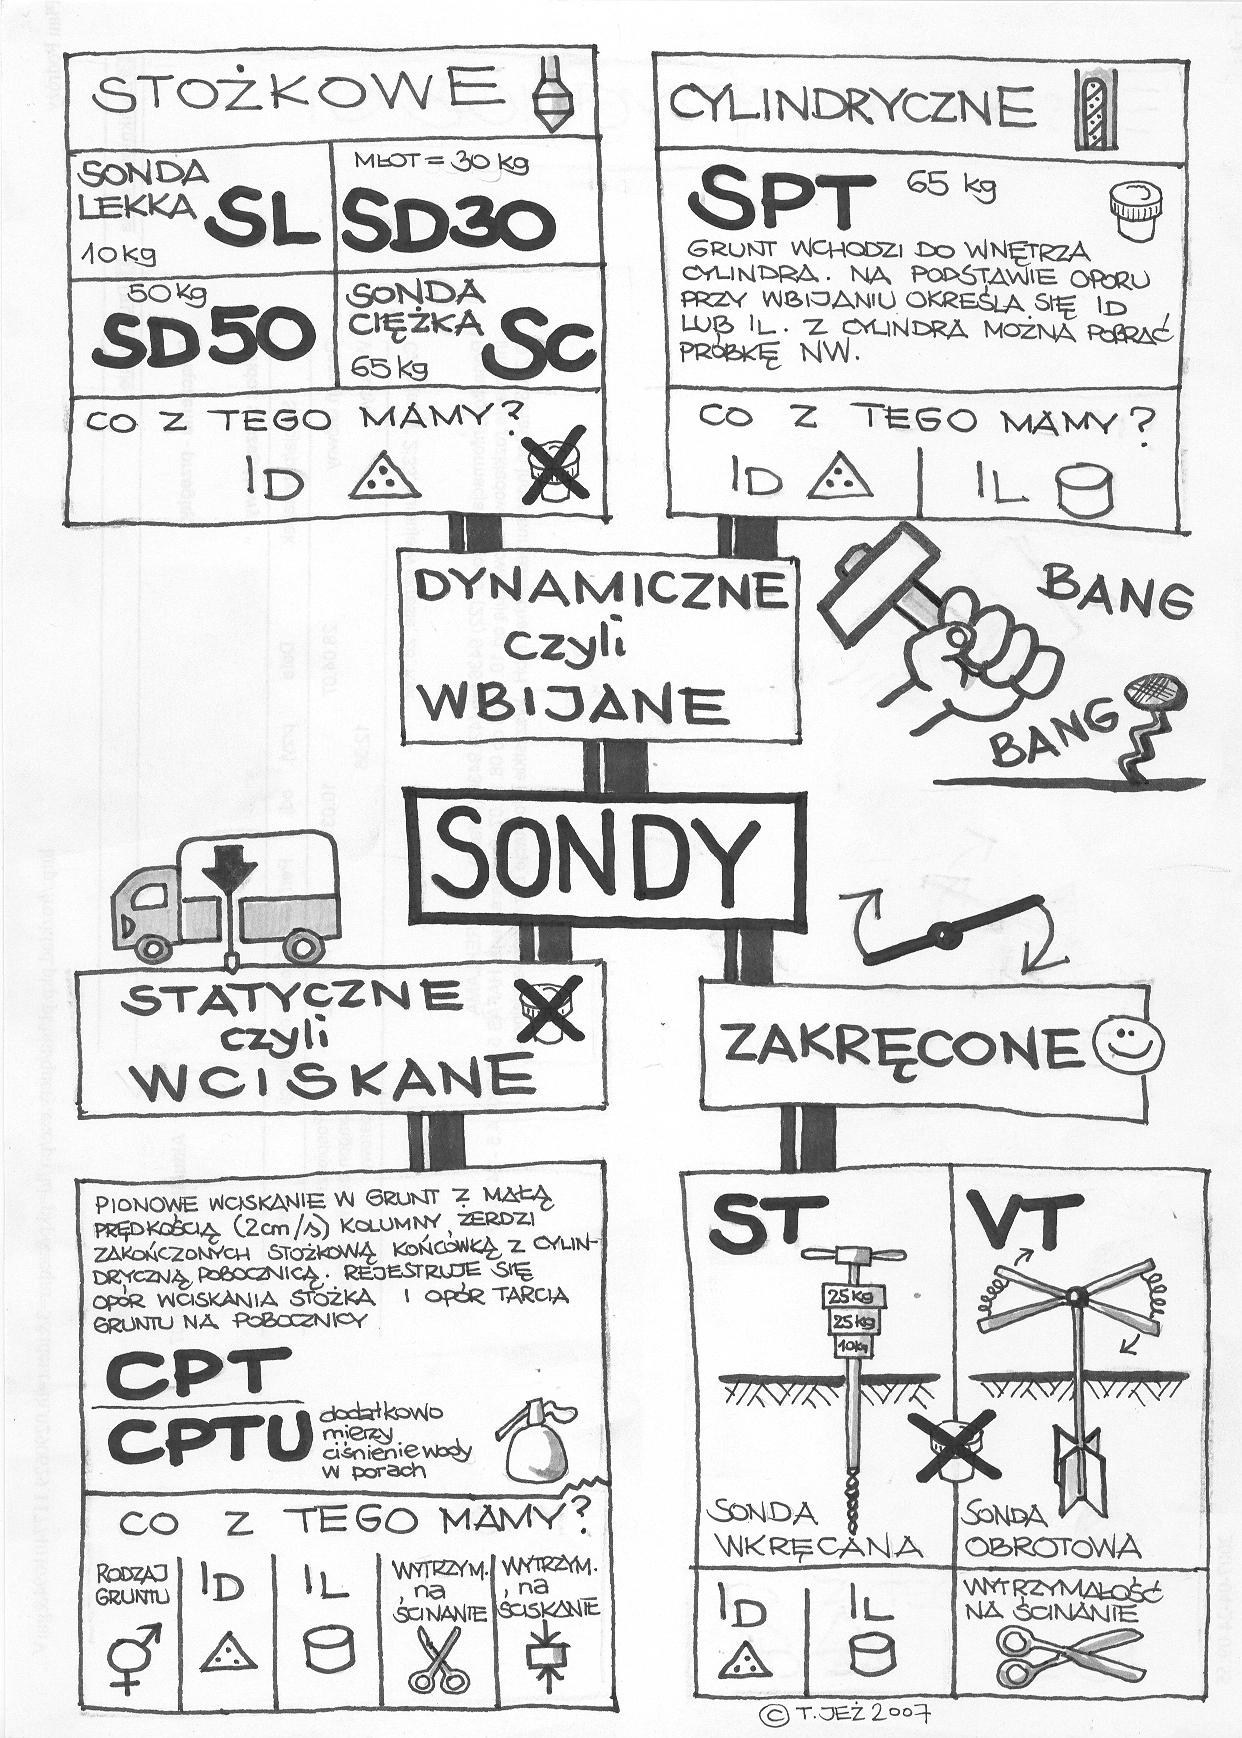 STOŻKOWE
SONDA
LEKKA SL
10kg
MŁOT = 30 kg
SD30
50kg
SD50
SONDA
CIĘŻKA Sc
65kg
CO Z TEGO MAMY?
ID
CYLINDRYCZNE
SPT 65 kg
GRUNT WCHODZI DO WNĘTRZA
CYLINDRA. NA PODSTAWIE OPORU
PRZY WBIJANIU OKREŚLA SIĘ ID
LUB IL. Z CYLINDRA MOŻNA POBRAĆ
PRÓBKĘ NW.
CO Z TEGO MAMY?
ID IL
DYNAMICZNE
czyli
WBIJANE
BANG
BANG
SONDY
STATYCZNE
czyli
WCISKANE
ZAKRĘCONE
PIONOWE WCISKANIE W GRUNT Z MAŁĄ
PRĘDKOŚCIĄ (2cm/s) KOLUMNY ŻERDZI
ZAKOŃCZONYCH STOŻKOWĄ KOŃCÓWKĄ Z CYLIN-
DRYCZNĄ POBOCZNICĄ. REJESTRUJE SIĘ
OPÓR WCISKANIA STOŻKA I OPÓR TARCIA
GRUNTU NA POBOCZNICY
CPT
CPTU dodatkowo
mierzy
ciśnienie wody
w porach
CO Z TEGO MAMY?
RODZAJ
GRUNTU
ID
IL
WYTRZYM.
na
ŚCINANIE
WYTRZYM.
na
ŚCISKANIE
ST
25kg
25kg
10kg
SONDA
WKRĘCANA
VT
SONDA
OBROTOWA
ID
IL
WYTRZYMAŁOŚĆ
NA ŚCINANIE
© T. JEŻ 2007